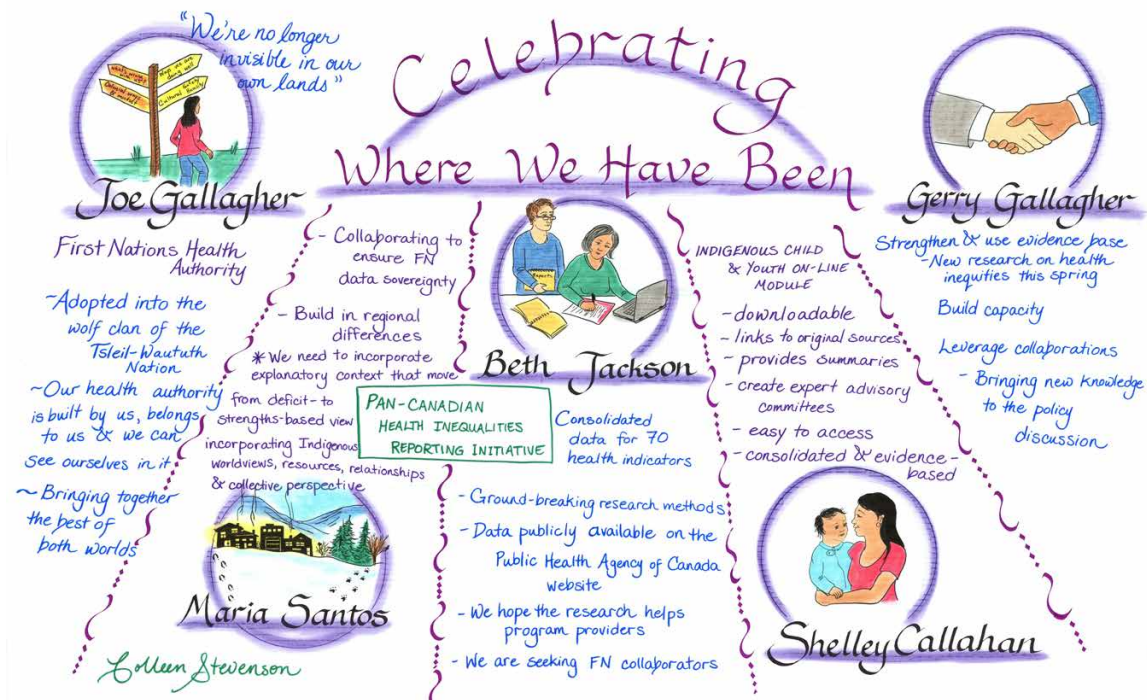 Celebrating
Where We Have Been
"We're no longer
invisible in our
own lands"
Joe Gallagher
First Nations Health
Authority
~Adopted into the
wolf clan of the
Tsleil-Waututh
Nation
~Our health authority
is built by us, belongs
to us & we can
see ourselves in it
~ Bringing together
the best of
both worlds
- Collaborating to
ensure FN
data sovereignty
- Build in regional
differences
* We need to incorporate
explanatory context that move
from deficit- to
strengths-based view
incorporating Indigenous
worldviews, resources, relationships
& collective perspective
Maria Santos
Colleen Stevenson
Reports
Beth Jackson
PAN-CANADIAN
HEALTH INEQUALITIES
REPORTING INITIATIVE
Consolidated
data for 70
health indicators
- Ground-breaking research methods
- Data publicly available on the
Public Health Agency of Canada
website
- We hope the research helps
program providers
- We are seeking FN collaborators
INDIGENOUS CHILD
& YOUTH ON-LINE
MODULE
- downloadable
- links to original sources
- provides summaries
- create expert advisory
committees
- easy to access
- consolidated & evidence-
based
Shelley Callahan
Gerry Gallagher
Strengthen & use evidence base
- New research on health
inequities this spring
Build capacity
Leverage collaborations
- Bringing new knowledge
to the policy
discussion